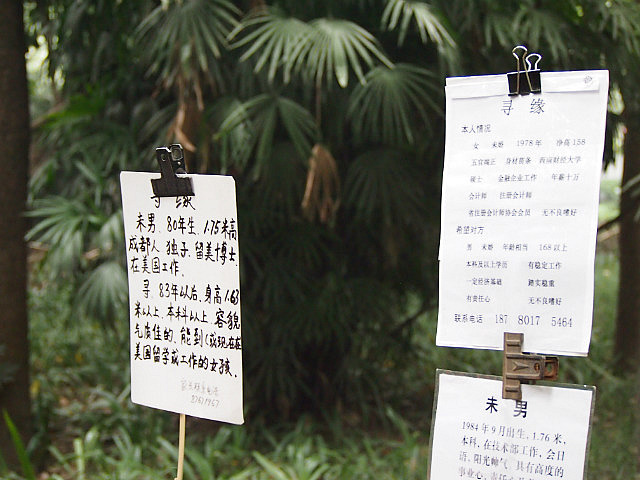 寻缘
未男、80年生、1.75米高
成都人、独子、留美博士、
在美国工作.
寻、83年以后、身高1.63
米以上、本科以上、容貌
气质佳的、能到(或现在在
美国留学或工作的女孩.
寻 缘
本人情况
女 未婚 1978年 净高158
五官端正 身材苗条 西南财经大学
硕士 金融企业工作 年薪十万
会计师 注册会计师
省注册会计师协会会员 无不良嗜好
希望对方
男 未婚 年龄相当 168以上
本科及以上学历 有稳定工作
一定经济基础 踏实稳重
有责任心 无不良嗜好
联系电话 187 8017 5464
未 男
1984年9月出生,1.76米,
本科,在技术部工作,会日
语,阳光帅气,具有高度的
事业心,